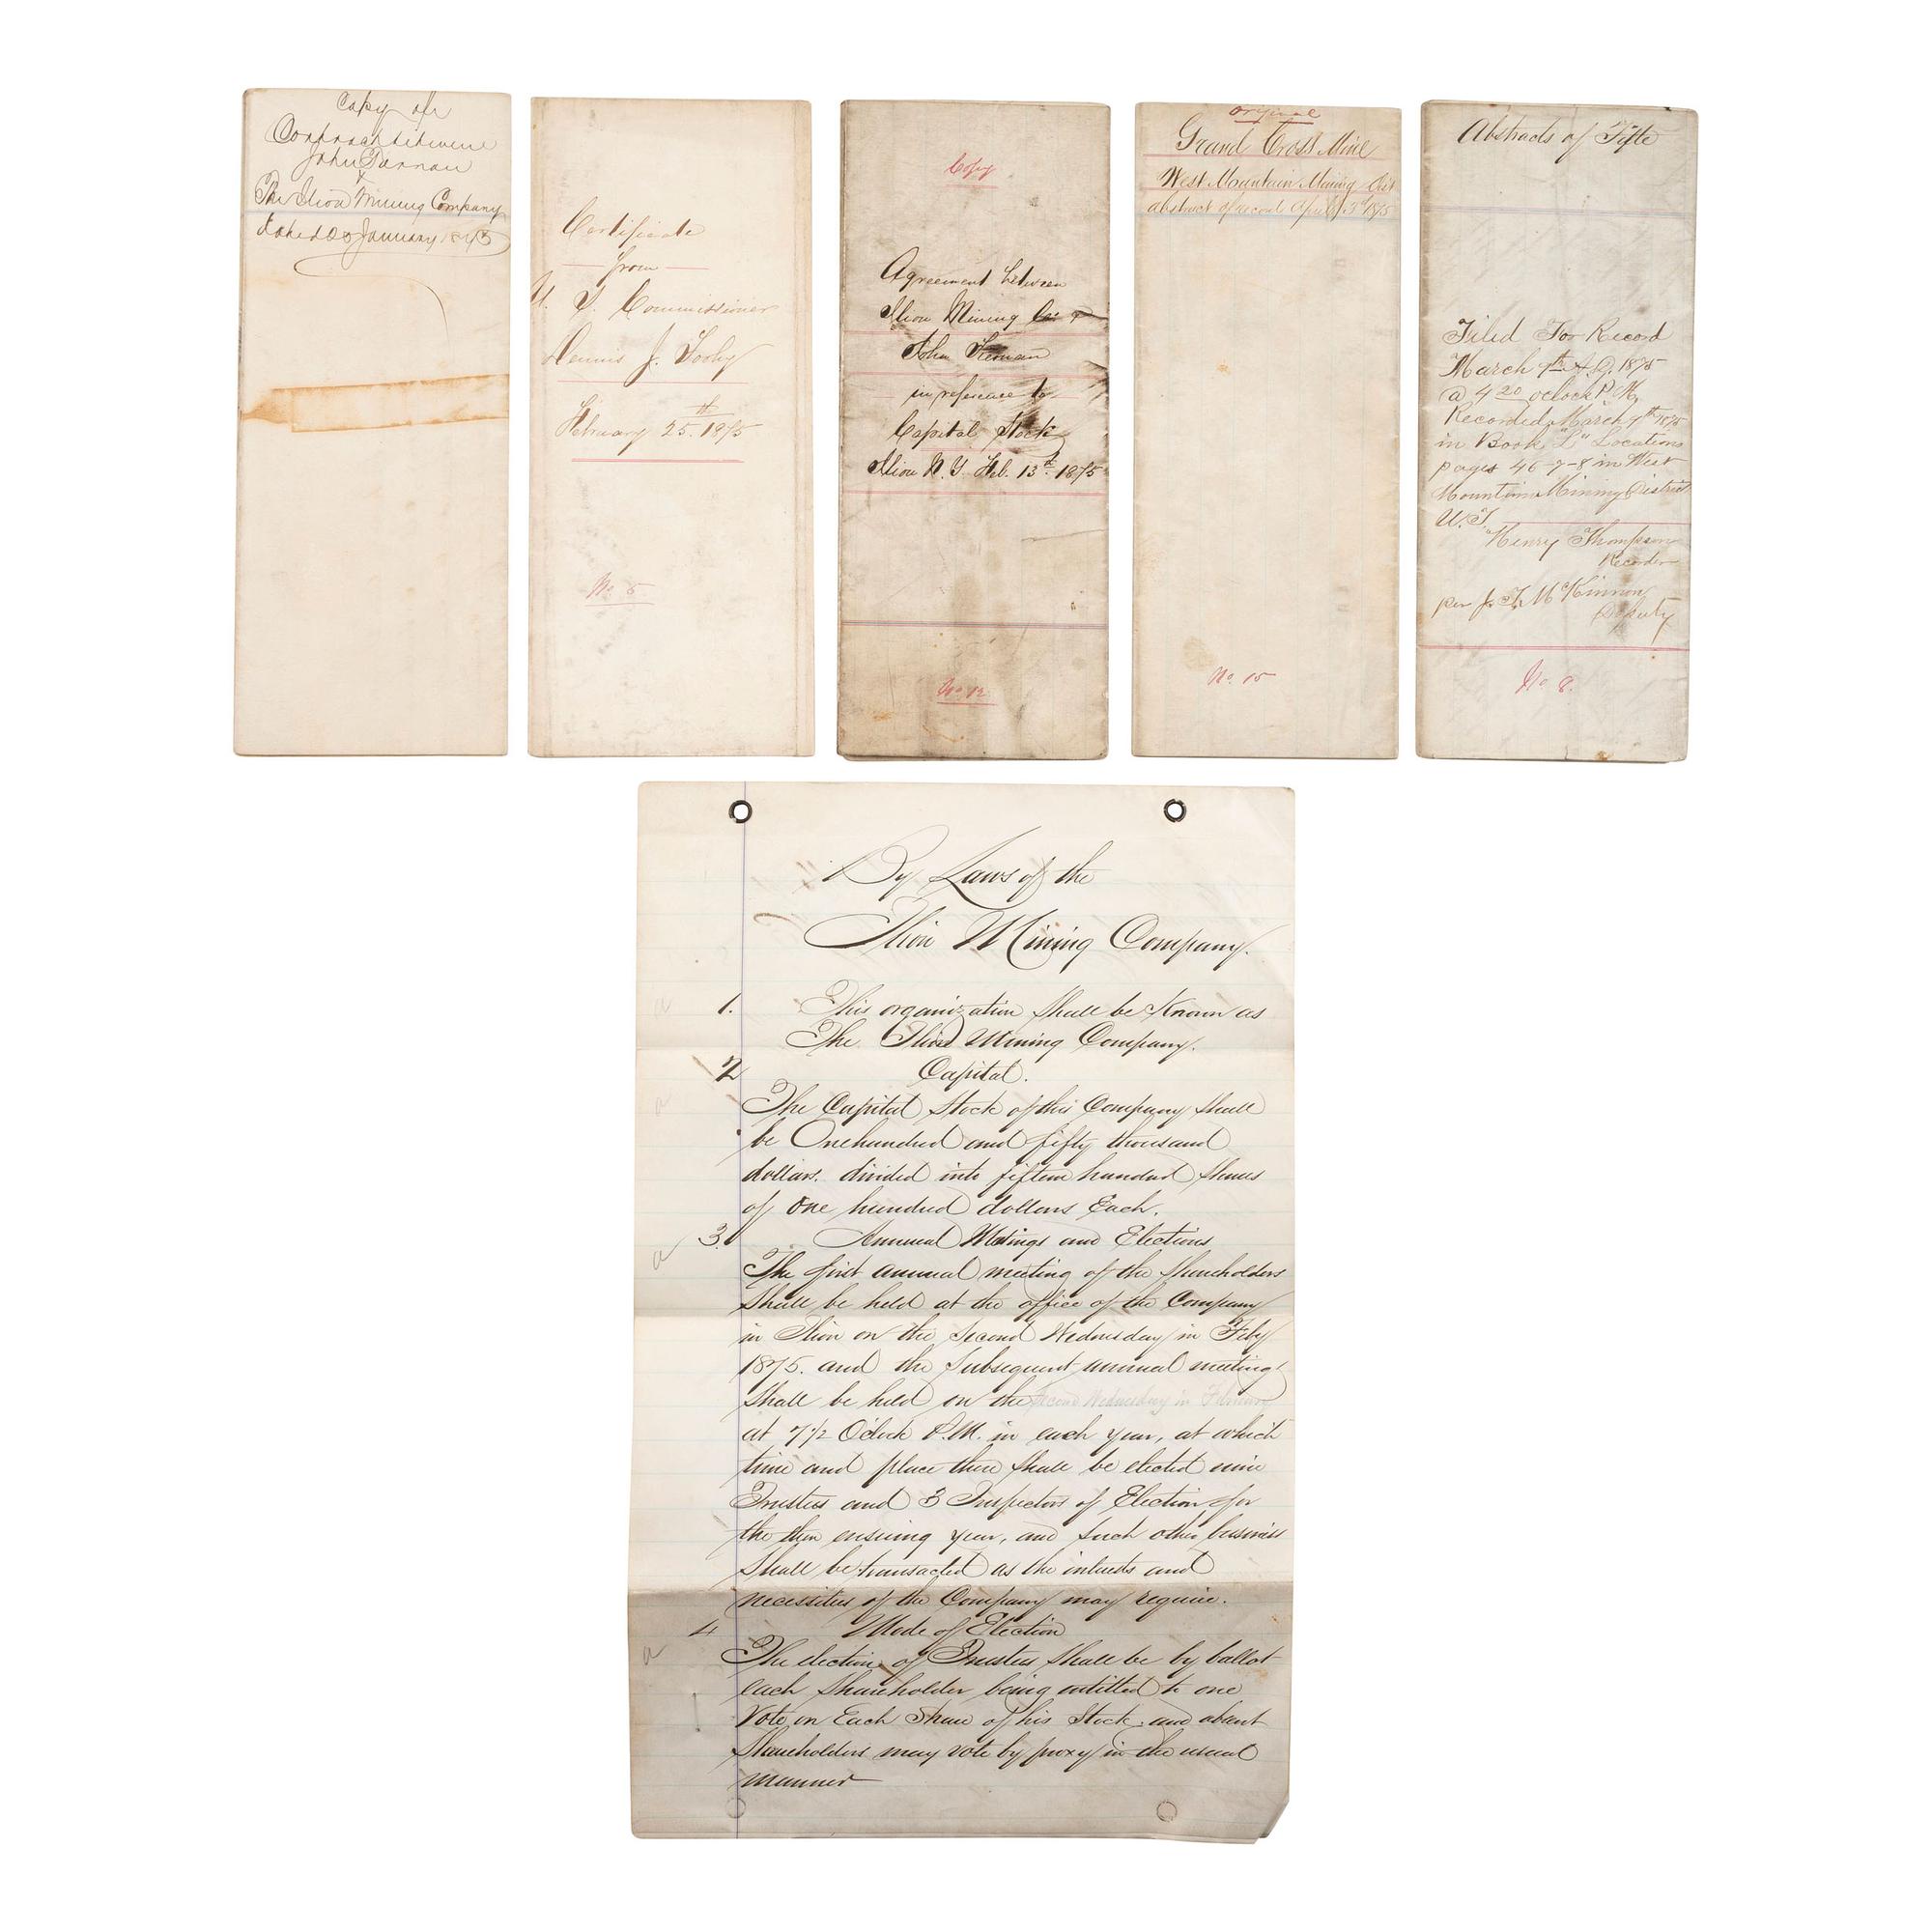 Copy of
Contract between
John
&
The Ilion Mining Company
dated 20 January 1875
Certificate
from
U. S. Commissioner
Dennis J. Toohy
February 25th. 1875
No 5
Copy
Agreement between
Ilion Mining Co. &
John Tiernan
in reference to
Capital Stock
Ilion N. Y. Feb. 13th 1875
No 12
original
Grand Cross Mine
West Mountain Mining Dist
abstract of record April 3d 1875
No. 15
Abstracts of Title
Filed For Record
March 9th A.D. 1875
@ 4 20 oclock P. M,
Recorded March 9th 1875
in Book "L" Locations
pages 46-7-8 in West
Mountain Mining District
U. T.
Henry Thompson
Recorder
per J. T. McKinnon
Deputy
No 8.
By Laws of the
Ilion Mining Company.
1. This organization shall be Known as
The Ilion Mining Company.
2 Capital.
The Capital Stock of this Company shall
be One hundred and fifty thousand
dollars. divided into fifteen hundred shares
of One hundred dollars Each.
3. Annual Meetings and Elections
The first annual meeting of the shareholders
shall be held at the office of the Company
in Ilion on the second Wednesday in Feby
1875. and the subsequent annual meetings
shall be held on the second Wednesday in February
at 7 1/2 O'clock P.M. in each year, at which
time and place there shall be elected nine
Trustees and 3 Inspectors of Election for
the then ensuing year, and such other business
shall be transacted as the interests and
necessities of the Company may require.
4 Mode of Election
The election of Trustees shall be by ballot
each shareholder being entitled to one
Vote on Each Share of his Stock. and absent
Shareholders may vote by proxy in the usual
manner